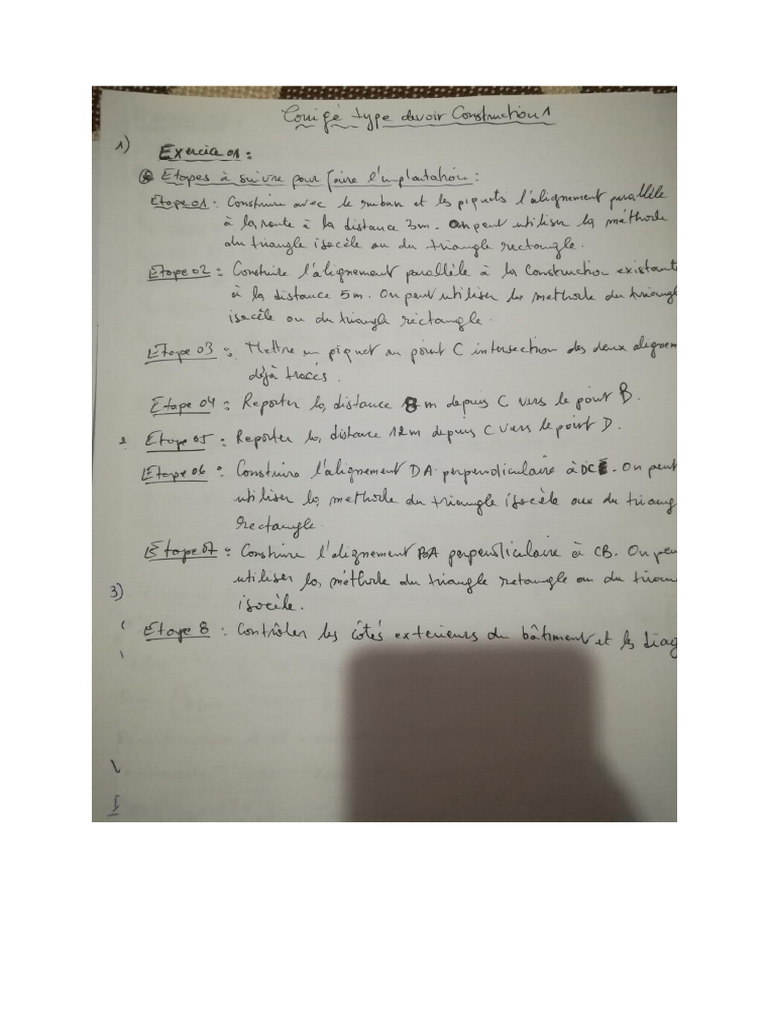 Corrigé type devoir Construction 1
1)
Exercice 01 :
Etapes à suivre pour faire l'implantation :
Etape 01 : Construire avec le ruban et les piquets l'alignement parallèle
à la route à la distance 3m. On peut utiliser la méthode
du triangle isocèle ou du triangle rectangle.
Etape 02 : Construire l'alignement parallèle à la Construction existante
à la distance 5m. On peut utiliser la méthode du triangl
isocèle ou du triangle rectangle.
Etape 03 : Mettre un piquet au point C intersection des deux alignem
déjà tracés.
Etape 04 : Reporter la distance 8m depuis C vers le point B.
Etape 05 : Reporter la distance 12m depuis C vers le point D.
Etape 06 : Construire l'alignement DA perpendiculaire à DC. On peut
utiliser la méthode du triangle isocèle aux du triang
rectangle.
Etape 07 : Construire l'alignement BA perpendiculaire à CB. On peu
utiliser la méthode du triangle retangle ou du trian
3)
isocèle.
Etape 8 : Contrôler les côtés exterieurs du bâtiment et les diag